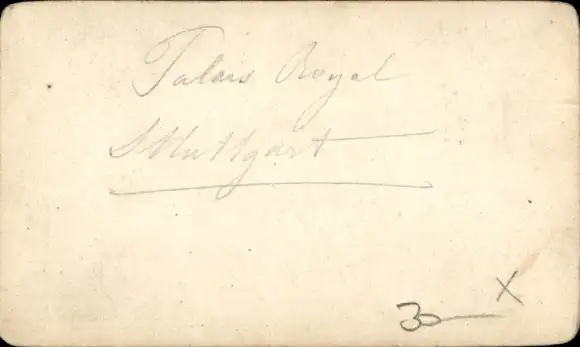 Palais Royal
Stuttgart
x
30—